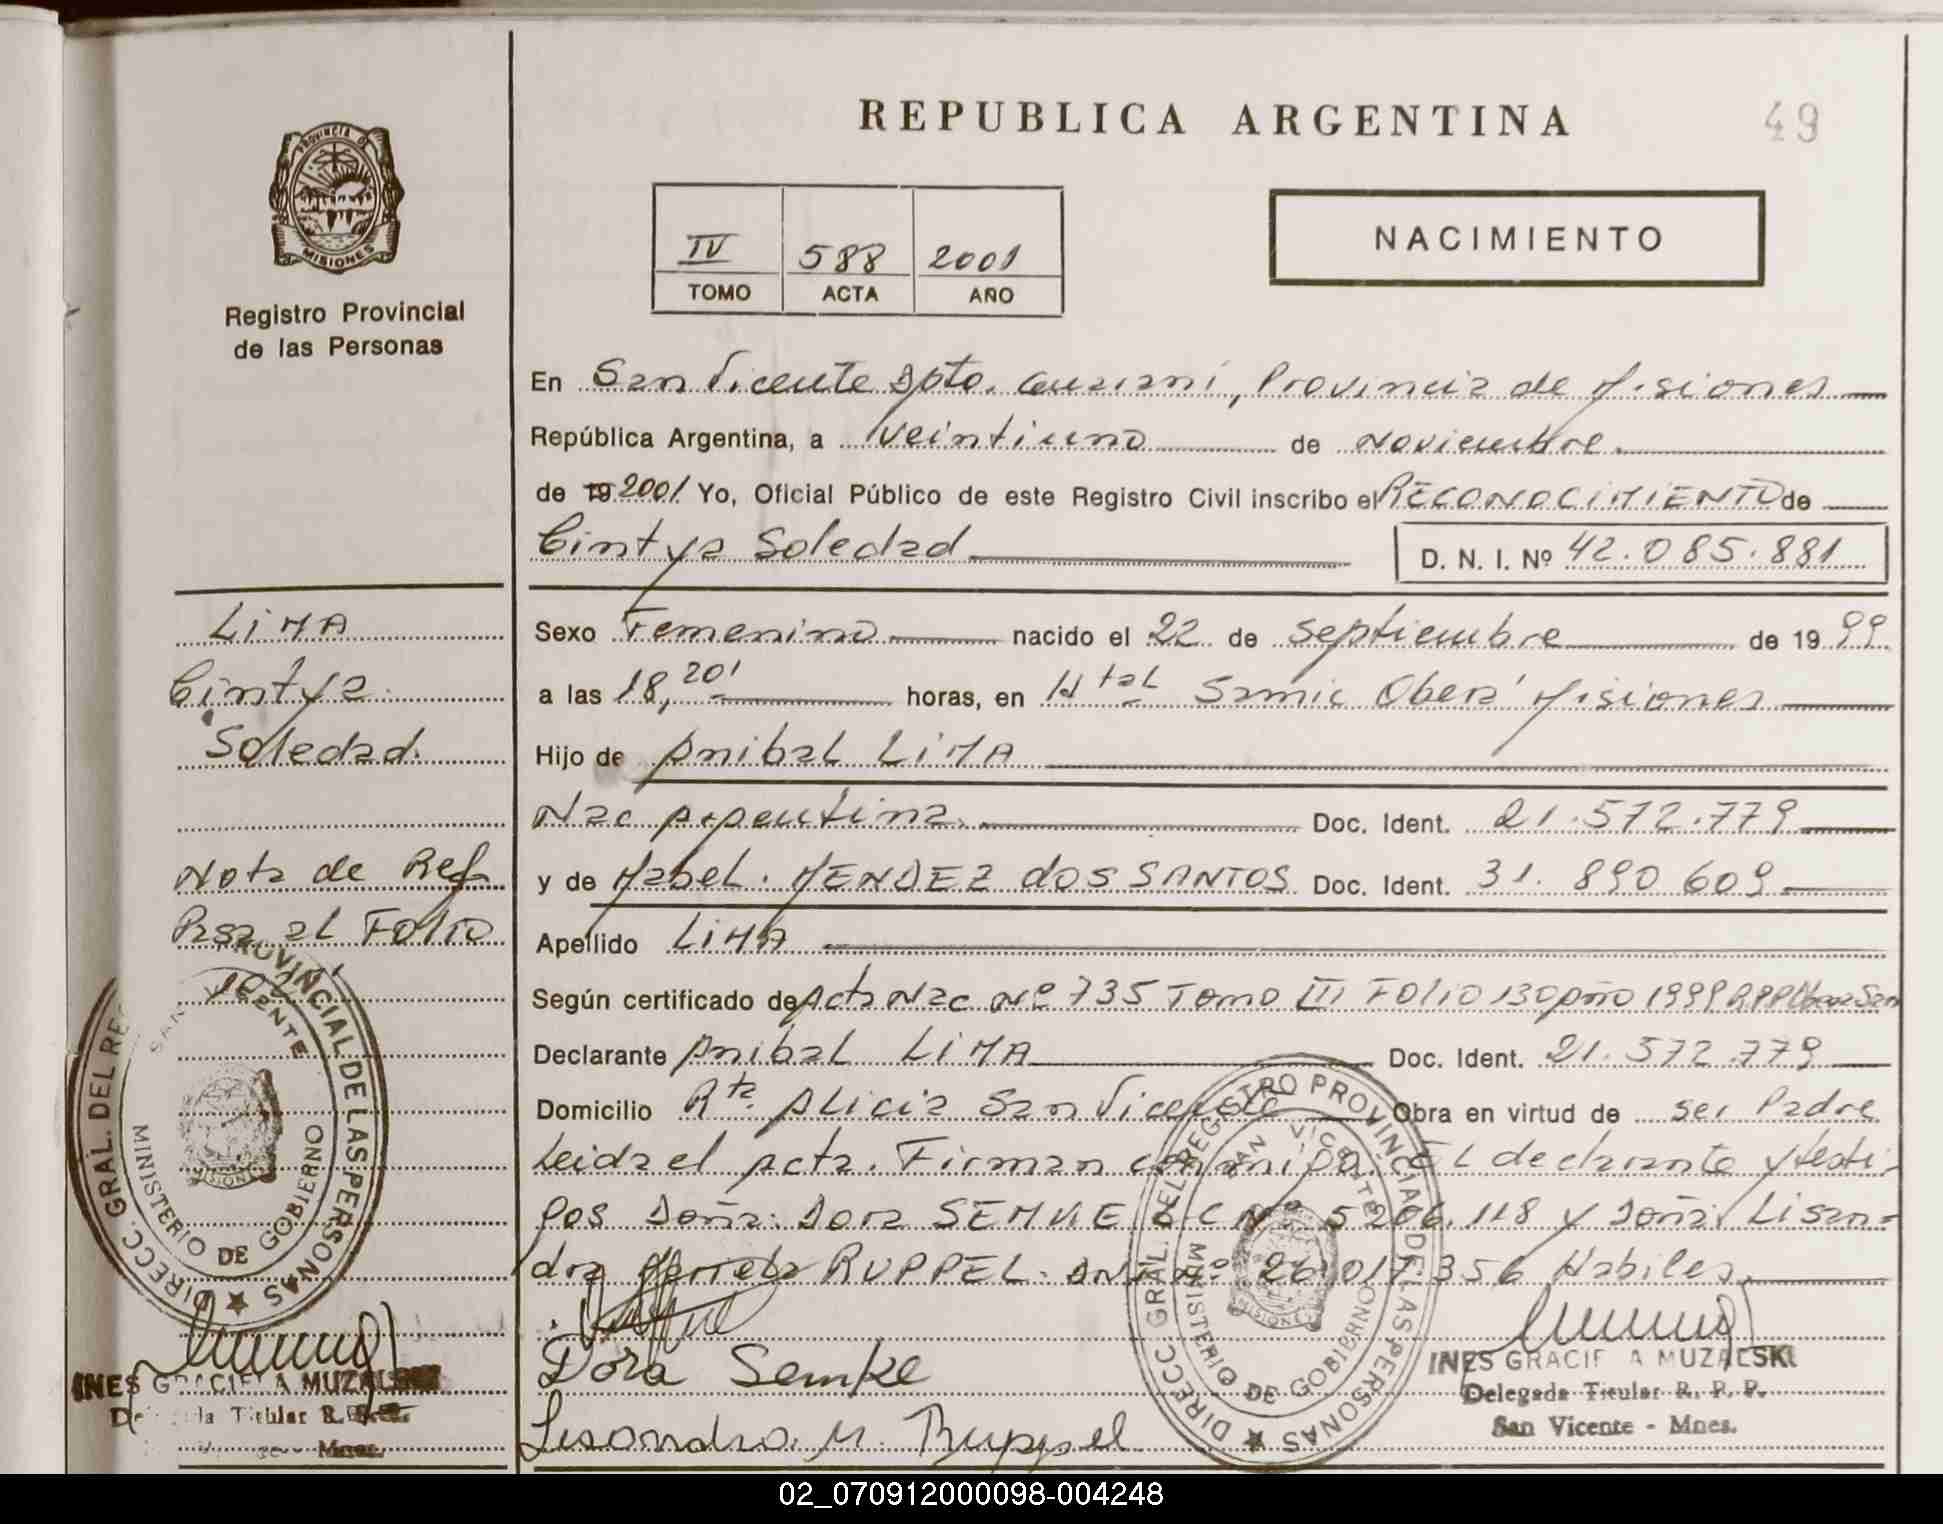 REPUBLICA ARGENTINA
49
PROVINCIA DE
MISIONES
Registro Provincial
de las Personas
IV 588 2001
TOMO ACTA AÑO
NACIMIENTO
En San Vicente Dpto. Guarani, Provincia de Misiones
República Argentina, a veintiuno de noviembre
de 19 2001 Yo, Oficial Público de este Registro Civil inscribo el RECONOCIMIENTO de
Cintya Soledad D. N. I. Nº 42.085.881
Sexo Femenino nacido el 22 de septiembre de 1999
a las 18,20' horas, en Htal Samic Oberá Misiones
Hijo de Anibal LIMA
Nac Argentina. Doc. Ident. 21.572.779
y de Mabel. MENDEZ dos SANTOS Doc. Ident. 31.890 609
Apellido LIMA
Según certificado de Acta Nac Nº 735 Tomo III FOLIO 130 Año 1999 R.P.P.
Declarante Anibal LIMA Doc. Ident. 21.572.779
Domicilio Rta. Alicia San Vicente Obra en virtud de ser Padre
Leida el acta. Firman EL declarante y testi-
gos Doña: Dora SEMKE 5206.118 y Doña: Lisan-
dra RUPPEL. 26.017.356 Habiles
Dora Semke
Lisandra. M. Ruppel
LIMA
Cintya
Soledad.
Nota de Ref
Pasa al FOLIO
DIRECC. GRAL. DEL REGISTRO PROVINCIAL DE LAS PERSONAS
SAN VICENTE
MINISTERIO DE GOBIERNO
MISIONES
INES GRACIELA MUZALSKI
Delegada Titular R. P. P.
Mnes.
DIRECC. GRAL. DEL REGISTRO PROVINCIAL DE LAS PERSONAS
SAN VICENTE
MINISTERIO DE GOBIERNO
MISIONES
INES GRACIELA MUZALSKI
Delegada Titular R. P. P.
San Vicente - Mnes.
02_070912000098-004248